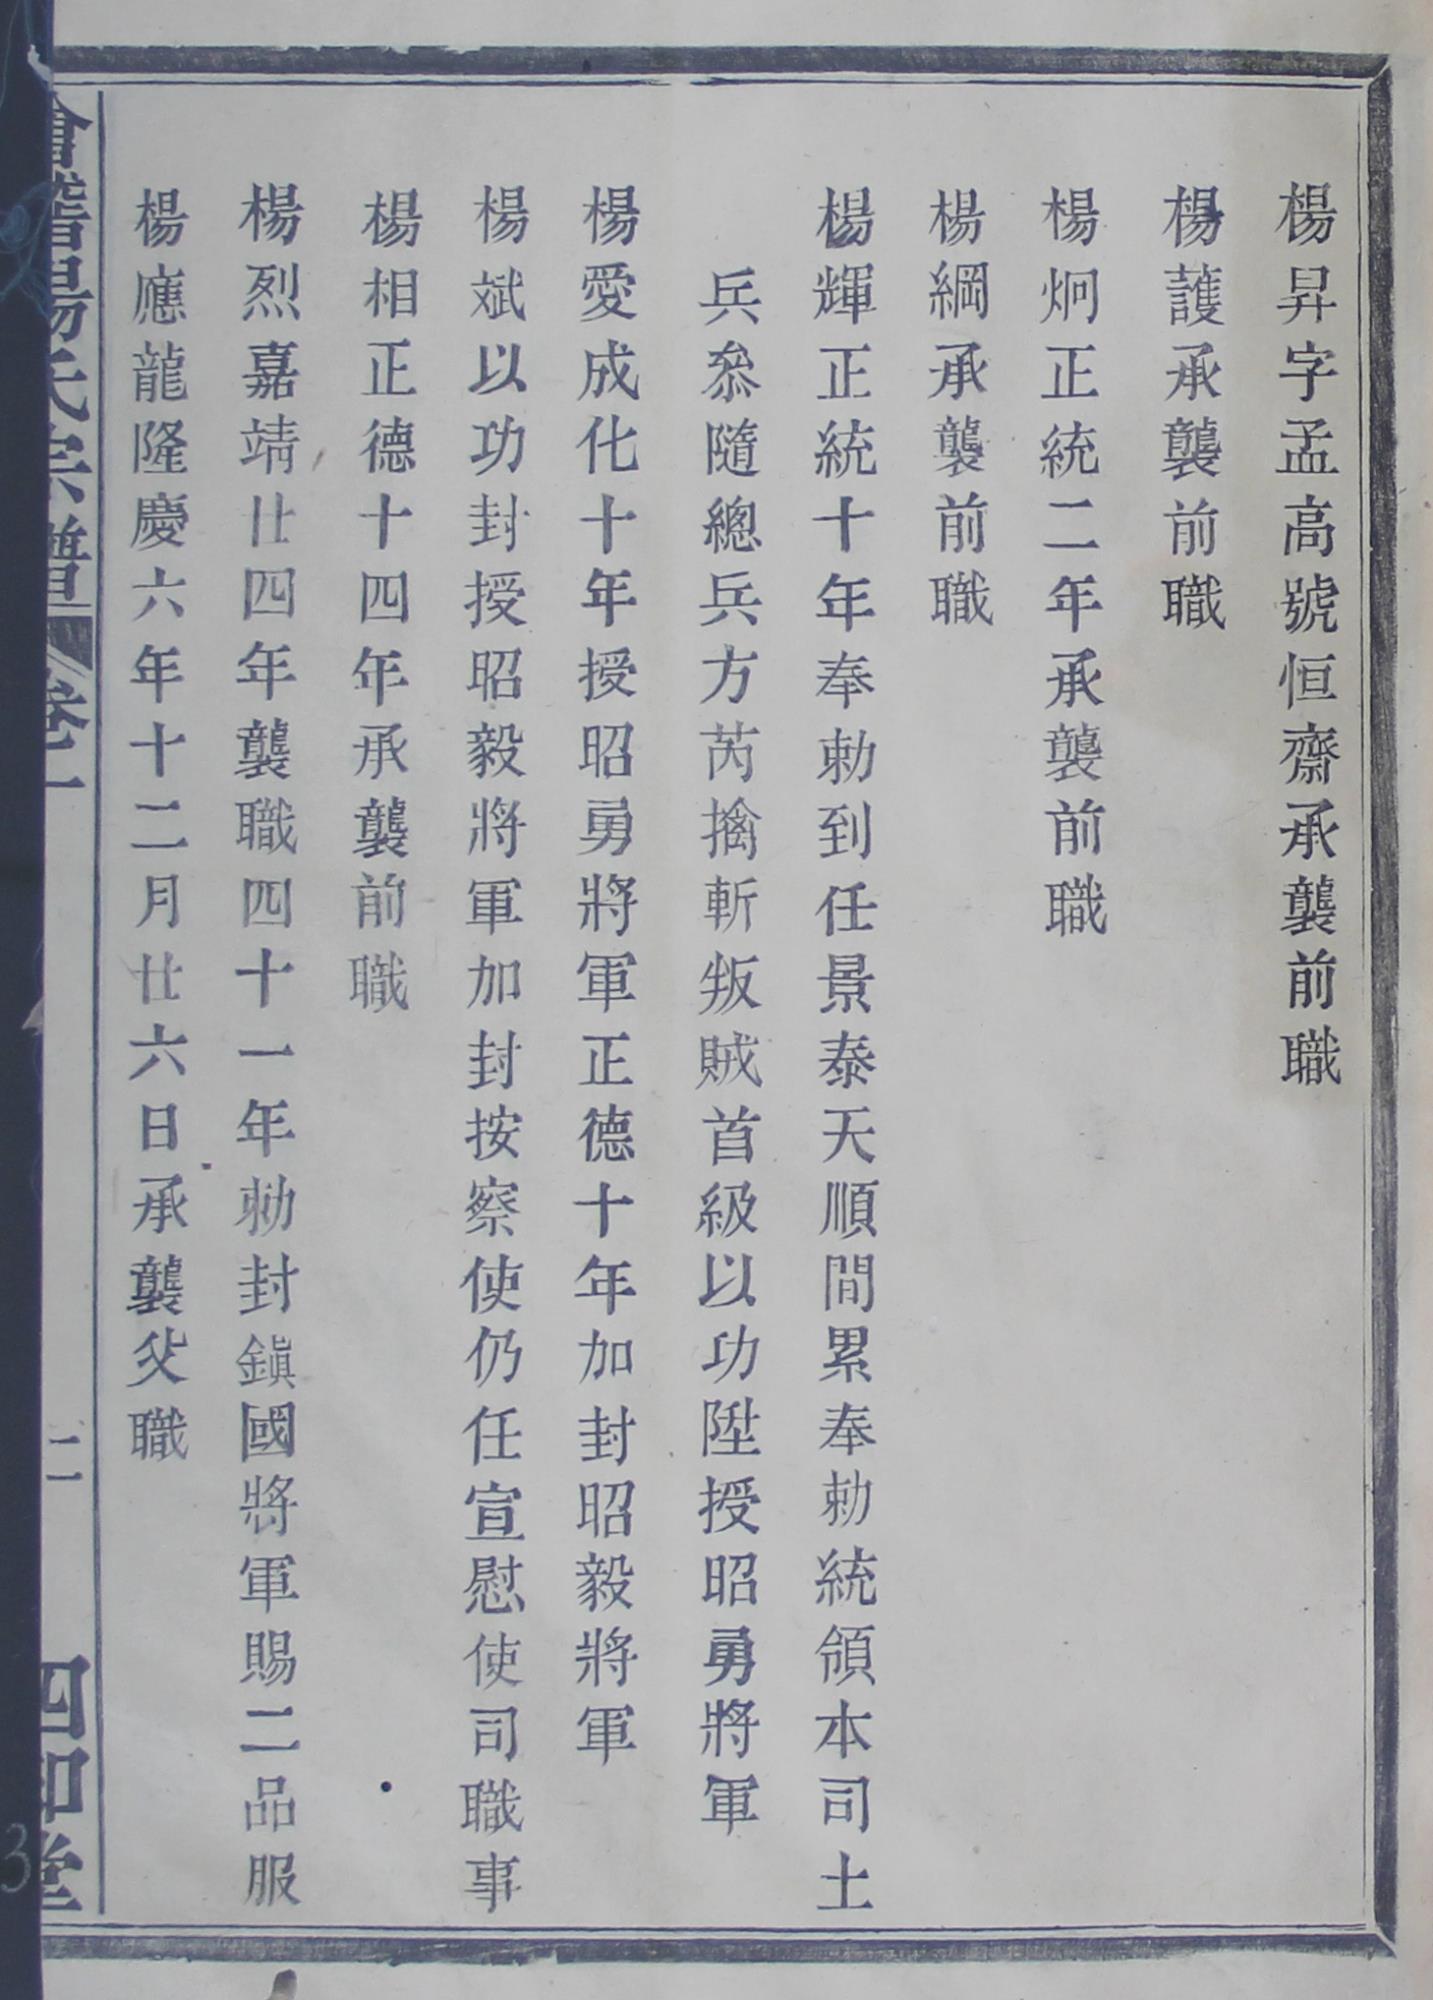 楊昇字孟高號恒齋承襲前職
楊護承襲前職
楊炯正統二年承襲前職
楊綱承襲前職
楊輝正統十年奉勅到任景泰天順間累奉勅統領本司土
兵叅隨總兵方芮擒斬叛賊首級以功陞授昭勇將軍
楊愛成化十年授昭勇將軍正德十年加封昭毅將軍
楊斌以功封授昭毅將軍加封按察使仍任宣慰使司職事
楊相正德十四年承襲前職
楊烈嘉靖廿四年襲職四十一年勅封鎭國將軍賜二品服
楊應龍隆慶六年十二月廿六日承襲父職
會稽楊氏宗譜 卷一 二 四知堂
3